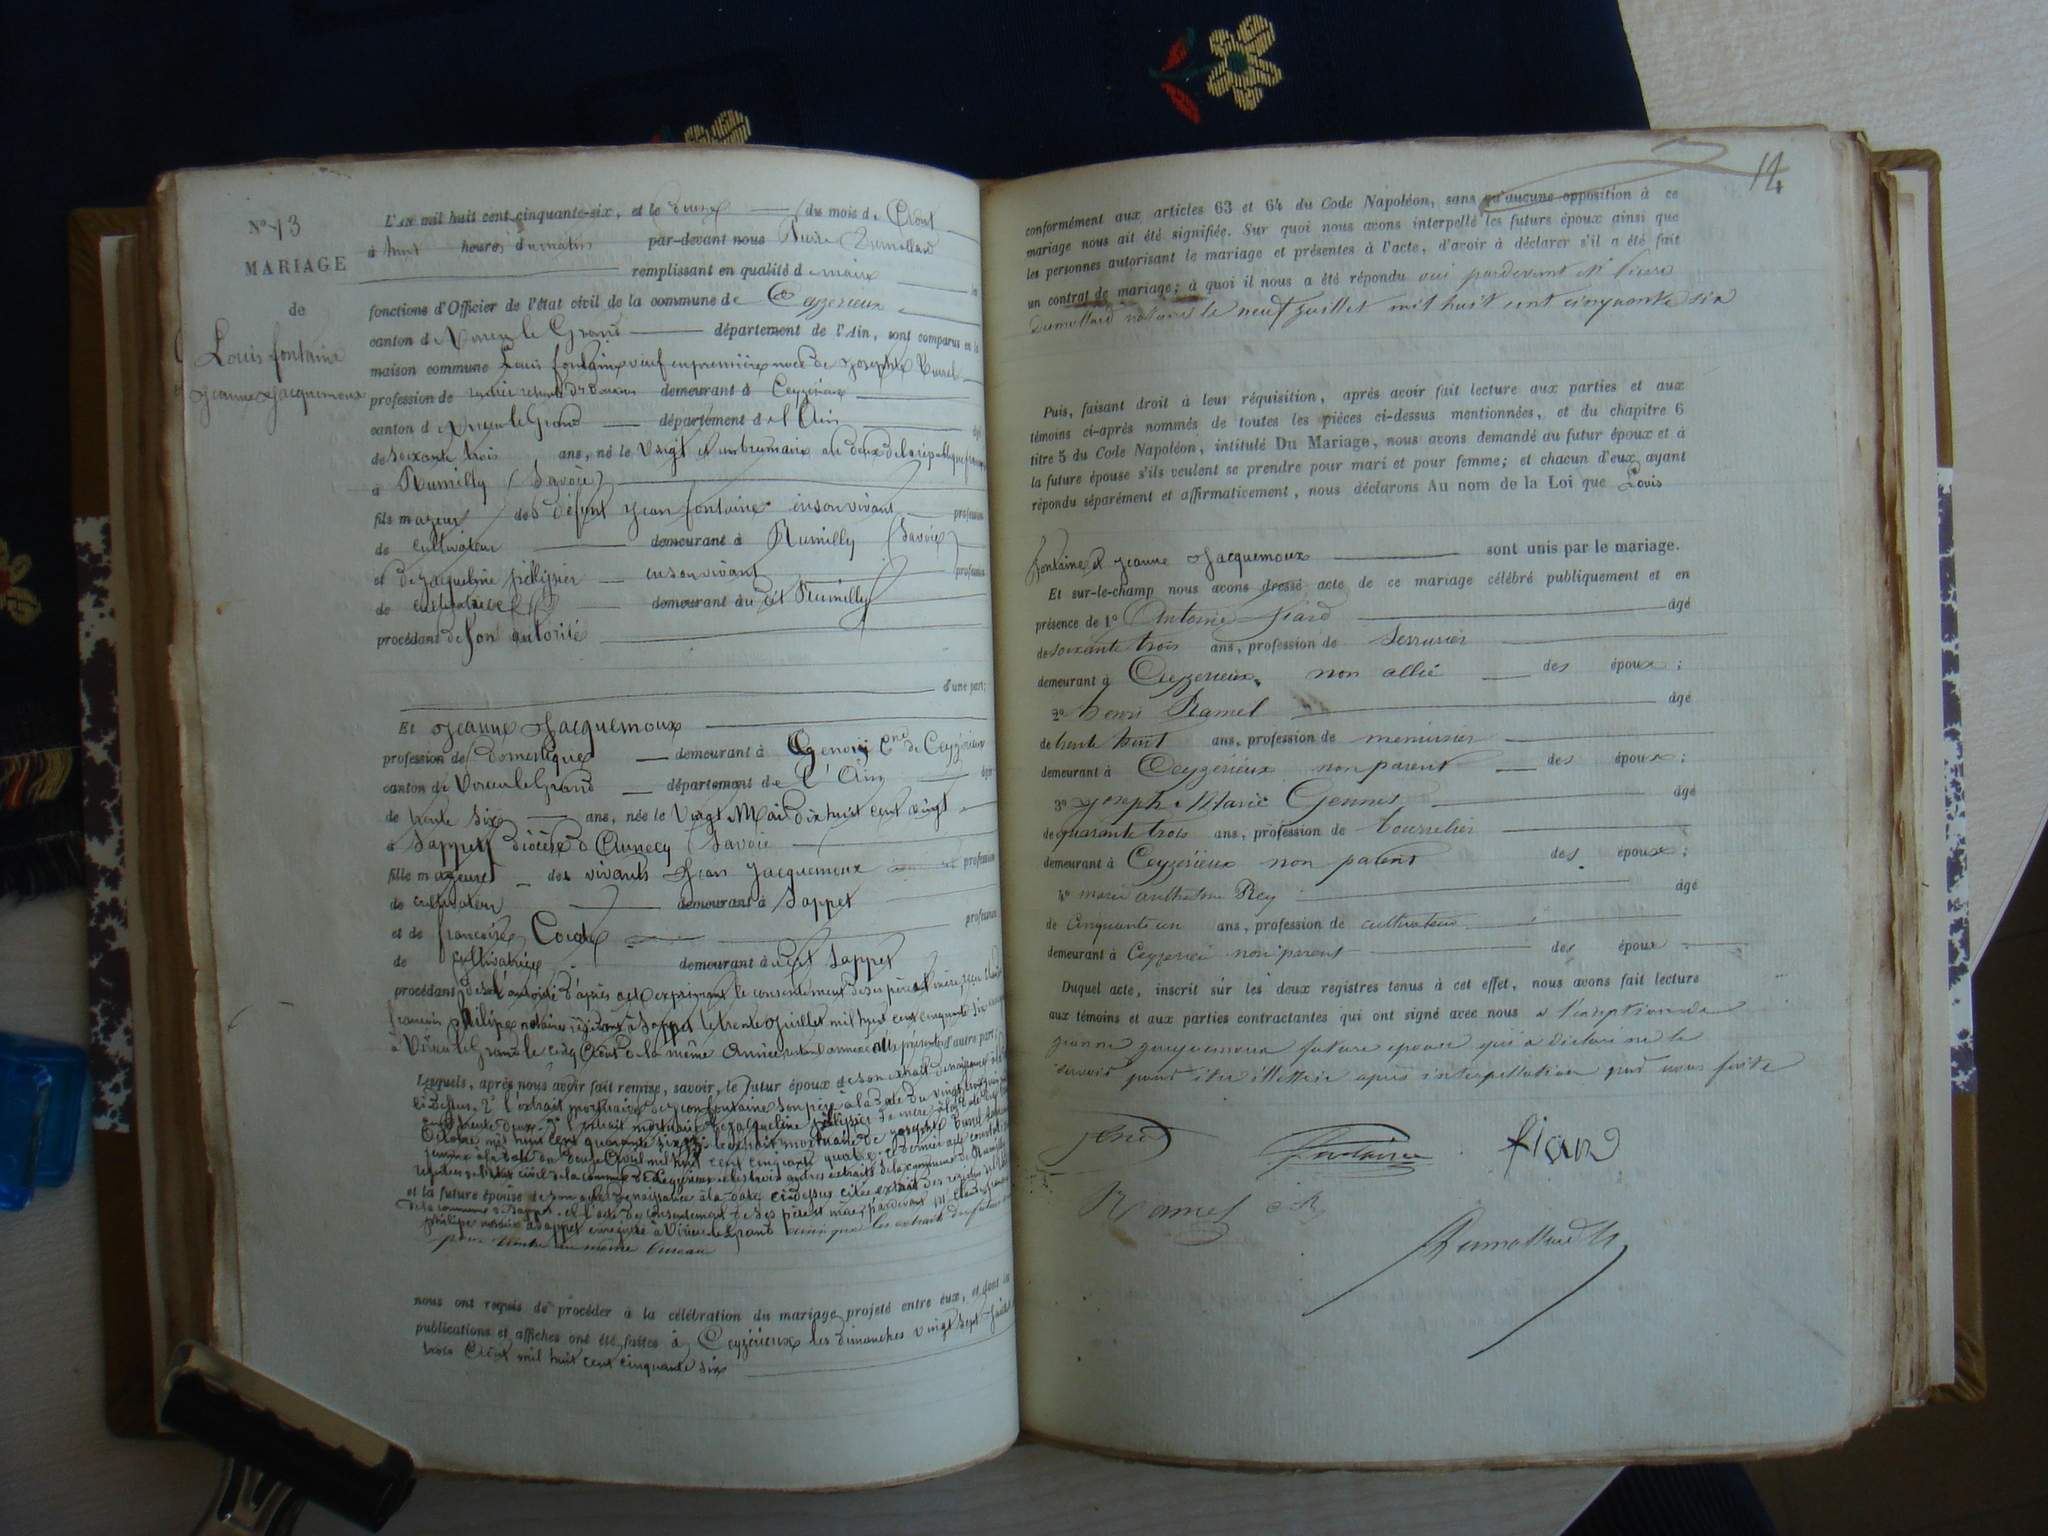 N° 13
MARIAGE
de
Louis fontaine
et
Jeanne Jacquemoux
L'An mil huit cent cinquante-six, et le douze du mois d Août
à huit heures du matin par-devant nous Dumollard
remplissant en qualité d maire les
fonctions d'Officier de l'état civil de la commune de Ceyzerieux
canton d Virieu le Grand département de l'Ain, sont comparus en la
maison commune Louis fontaine veuf en première noce de Josephte Burel
profession de demeurant à Ceyzerieux
canton d Virieu le Grand département d e l'Ain âgé
de soixante trois ans, né le Vingt brumaire an deux de la république
à Rumilly (Savoie)
fils majeur des défunt Jean fontaine en son vivant profession
de cultivateur demeurant à Rumilly (Savoie)
et de Jacqueline pélissier en son vivant profession
de cultivatrice demeurant au dit Rumilly
procédant de son autorité
d'une part;
Et Jeanne Jacquemoux
profession de domestique demeurant à Cne de Ceyzérieux
canton de Virieu le Grand département de L'Ain âgée
de trente six ans, née le Vingt Mai dix huit cent vingt
à Sappey diocèse d'Annecy Savoie
fille majeure des vivants Jean Jacquemoux profession
de cultivateur demeurant à Sappey
et de françoise profession
de cultivatrice demeurant au dit Sappey
procédant de l'autorité d'après acte exprimant le consentement de ses père et mère reçu
françois philipe notaire à Sappey le trente Juillet mil huit cent cinquante six
à Virieu le Grand le cinq Août de la même Année d'autre part;
Lesquels, après nous avoir fait remise, savoir, le futur époux de son extrait de naissance
ci dessus. 2° l'extrait mortuaire de Jean fontaine son père à la date du vingt
l'extrait mortuaire de Jacqueline pélissier sa mère à la date
Octobre mil huit cent quarante six l'extrait mortuaire de Josephte Burel
à la date du douze Avril mil huit cent cinquante quatre ce dernier acte
registres de l'état civil de la commune de Ceyzerieux et les trois autres extraits de la commune de Rumilly
et la future épouse de son acte de naissance à la date ci dessus citée extrait des registres
de la commune de Sappey et l'acte de consentement de ses père et mère pardevant Me
philipe notaire à Sappey enregistré à Virieu le Grand ainsi que les extraits du futur
même bureau
nous ont requis de procéder à la célébration du mariage projeté entre eux, et dont les
publications et affiches ont été faites à Ceyzérieux les dimanches vingt sept Juillet
trois Août mil huit cent cinquante six
14
conformément aux articles 63 et 64 du Code Napoléon, sans qu'aucune opposition à ce
mariage nous ait été signifiée. Sur quoi nous avons interpellé les futurs époux ainsi que
les personnes autorisant le mariage et présentes à l'acte, d'avoir à déclarer s'il a été fait
un contrat de mariage; à quoi il nous a été répondu oui pardevant
Dumollard notaire le neuf juillet mil huit cent cinquante six
Puis, faisant droit à leur réquisition, après avoir fait lecture aux parties et aux
témoins ci-après nommés de toutes les pièces ci-dessus mentionnées, et du chapitre 6
titre 5 du Code Napoléon, intitulé Du Mariage, nous avons demandé au futur époux et à
la future épouse s'ils veulent se prendre pour mari et pour femme; et chacun d'eux ayant
répondu séparément et affirmativement, nous déclarons Au nom de la Loi que Louis
fontaine et Jeanne Jacquemoux sont unis par le mariage.
Et sur-le-champ nous avons dressé acte de ce mariage célébré publiquement et en
présence de 1° Antoine fiard âgé
de soixante trois ans, profession de Serrurier
demeurant à Ceyzerieux non allié des époux;
2° henri Ramel âgé
de trente huit ans, profession de menuisier
demeurant à Ceyzerieux non parent des époux;
3° Joseph Marie Gennet âgé
de quarante trois ans, profession de bourrelier
demeurant à Ceyzérieux non parent des époux;
4° marie anthelme Rey âgé
de Cinquante un ans, profession de cultivateur
demeurant à Ceyzerieu non parent des époux
Duquel acte, inscrit sur les deux registres tenus à cet effet, nous avons fait lecture
aux témoins et aux parties contractantes qui ont signé avec nous a l'exception de
jeanne jacquemoux future epouse qui a déclaré ne le
savoir pour être illettrée après interpellation par nous faite
fontaine
fiard
Ramel
Dumollard